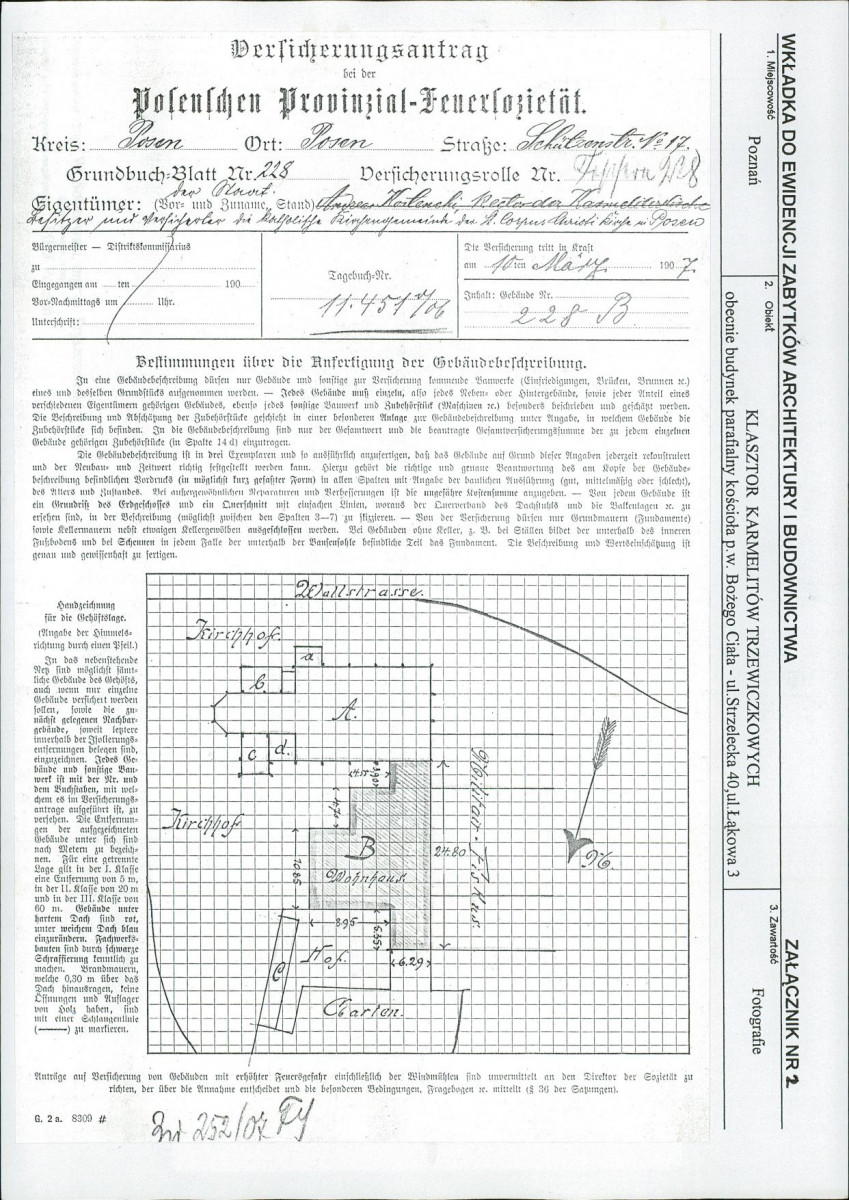 Versicherungsantrag
bei der
Posenschen Provinzial-Feuersozietät.
Kreis: Posen Ort: Posen Straße: Schützenstr. No 17.
Grundbuch-Blatt Nr. 228 Versicherungsrolle Nr.
der Staat.
Eigentümer: (Vor- und Zuname, Stand) Rector der Karmeliterkirche
Besitzer und Versicherter die katholische Kirchengemeinde der St. Corpus Christi Kirche in Posen
Bürgermeister — Distriktskommissarius
zu
Eingegangen am ten 190
Vor-Nachmittags um Uhr.
Unterschrift:
Tagebuch-Nr.
11.451 V/06
Die Versicherung tritt in Kraft
am 10ten März 1907.
Inhalt: Gebäude Nr.
228 B
Bestimmungen über die Anfertigung der Gebäudebeschreibung.
In eine Gebäudebeschreibung dürfen nur Gebäude und sonstige zur Versicherung kommende Bauwerke (Einfriedigungen, Brücken, Brunnen ꝛc.)
eines und desselben Grundstücks aufgenommen werden. — Jedes Gebäude muß einzeln, also jedes Neben- oder Hintergebäude, sowie jeder Anteil eines
verschiedenen Eigentümern gehörigen Gebäudes, ebenso jedes sonstige Bauwerk und Zubehörstück (Maschinen ꝛc.) besonders beschrieben und geschätzt werden.
Die Beschreibung und Abschätzung der Zubehörstücke geschieht in einer besonderen Anlage zur Gebäudebeschreibung unter Angabe, in welchem Gebäude die
Zubehörstücke sich befinden. In die Gebäudebeschreibung sind nur der Gesamtwert und die beantragte Gesamtversicherungssumme der zu jedem einzelnen
Gebäude gehörigen Zubehörstücke (in Spalte 14 d) einzutragen.
Die Gebäudebeschreibung ist in drei Exemplaren und so ausführlich anzufertigen, daß das Gebäude auf Grund dieser Angaben jederzeit rekonstruiert
und der Neubau- und Zeitwert richtig festgestellt werden kann. Hierzu gehört die richtige und genaue Beantwortung des am Kopfe der Gebäude-
beschreibung befindlichen Vordrucks (in möglichst kurz gefaßter Form) in allen Spalten mit Angabe der baulichen Ausführung (gut, mittelmäßig oder schlecht),
des Alters und Zustandes. Bei außergewöhnlichen Reparaturen und Verbesserungen ist die ungefähre Kostensumme anzugeben. — Von jedem Gebäude ist
ein Grundriß des Erdgeschosses und ein Querschnitt mit einfachen Linien, woraus der Querverband des Dachstuhls und die Balkenlagen ꝛc. zu
ersehen sind, in der Beschreibung (möglichst zwischen den Spalten 3—7) zu skizieren. — Von der Versicherung dürfen nur Grundmauern (Fundamente)
sowie Kellermauern nebst etwaigen Kellergewölben ausgeschlossen werden. Bei Gebäuden ohne Keller, z. B. bei Ställen bildet der unterhalb des inneren
Fußbodens und bei Scheunen in jedem Falle der unterhalb der Bansensohle befindliche Teil das Fundament. Die Beschreibung und Wertseinschätzung ist
genau und gewissenhaft zu fertigen.
Handzeichnung
für die Gehöftslage.
(Angabe der Himmels-
richtung durch einen Pfeil.)
In das nebenstehende
Netz sind möglichst sämt-
liche Gebäude des Gehöfts,
auch wenn nur einzelne
Gebäude versichert werden
sollen, sowie die zu-
nächst gelegenen Nachbar-
gebäude, soweit letztere
innerhalb der Isolierungs-
entfernungen belegen sind,
einzuzeichnen. Jedes Ge-
bäude und sonstige Bau-
werk ist mit der Nr. und
dem Buchstaben, mit wel-
chem es im Versicherungs-
antrage aufgeführt ist, zu
versehen. Die Entfernun-
gen der aufgezeichneten
Gebäude unter sich sind
nach Metern zu bezeich-
nen. Für eine getrennte
Lage gilt in der I. Klasse
eine Entfernung von 5 m,
in der II. Klasse von 20 m
und in der III. Klasse von
60 m. Gebäude unter
hartem Dach sind rot,
unter weichem Dach blau
einzurändern. Fachwerks-
bauten sind durch schwarze
Schraffierung kenntlich zu
machen. Brandmauern,
welche 0,30 m über das
Dach hinausragen, keine
Öffnungen und Auflager
von Holz haben, sind
mit einer Schlangenlinie
(———) zu markieren.
Wallstrasse.
Kirchhof.
a
b.
A.
c
d.
Kirchhof
4.75
B
Wohnhaus.
24.80
Militair-Fiskus.
N.
10.85
8.95
6.35
6.29
Hof.
C
Garten.
Anträge auf Versicherung von Gebäuden mit erhöhter Feuersgefahr einschließlich der Windmühlen sind unvermittelt an den Direktor der Sozietät zu
richten, der über die Annahme entscheidet und die besonderen Bedingungen, Fragebogen ꝛc. mitteilt (§ 36 der Satzungen).
G. 2 a. 8309 #
252/07
WKŁADKA DO EWIDENCJI ZABYTKÓW ARCHITEKTURY I BUDOWNICTWA
ZAŁĄCZNIK NR 2
1. Miejscowość
Poznań
2. Obiekt
KLASZTOR KARMELITÓW TRZEWICZKOWYCH
obecnie budynek parafialny kościoła p.w. Bożego Ciała - ul.Strzelecka 40,ul.Łąkowa 3
3. Zawartość
Fotografie